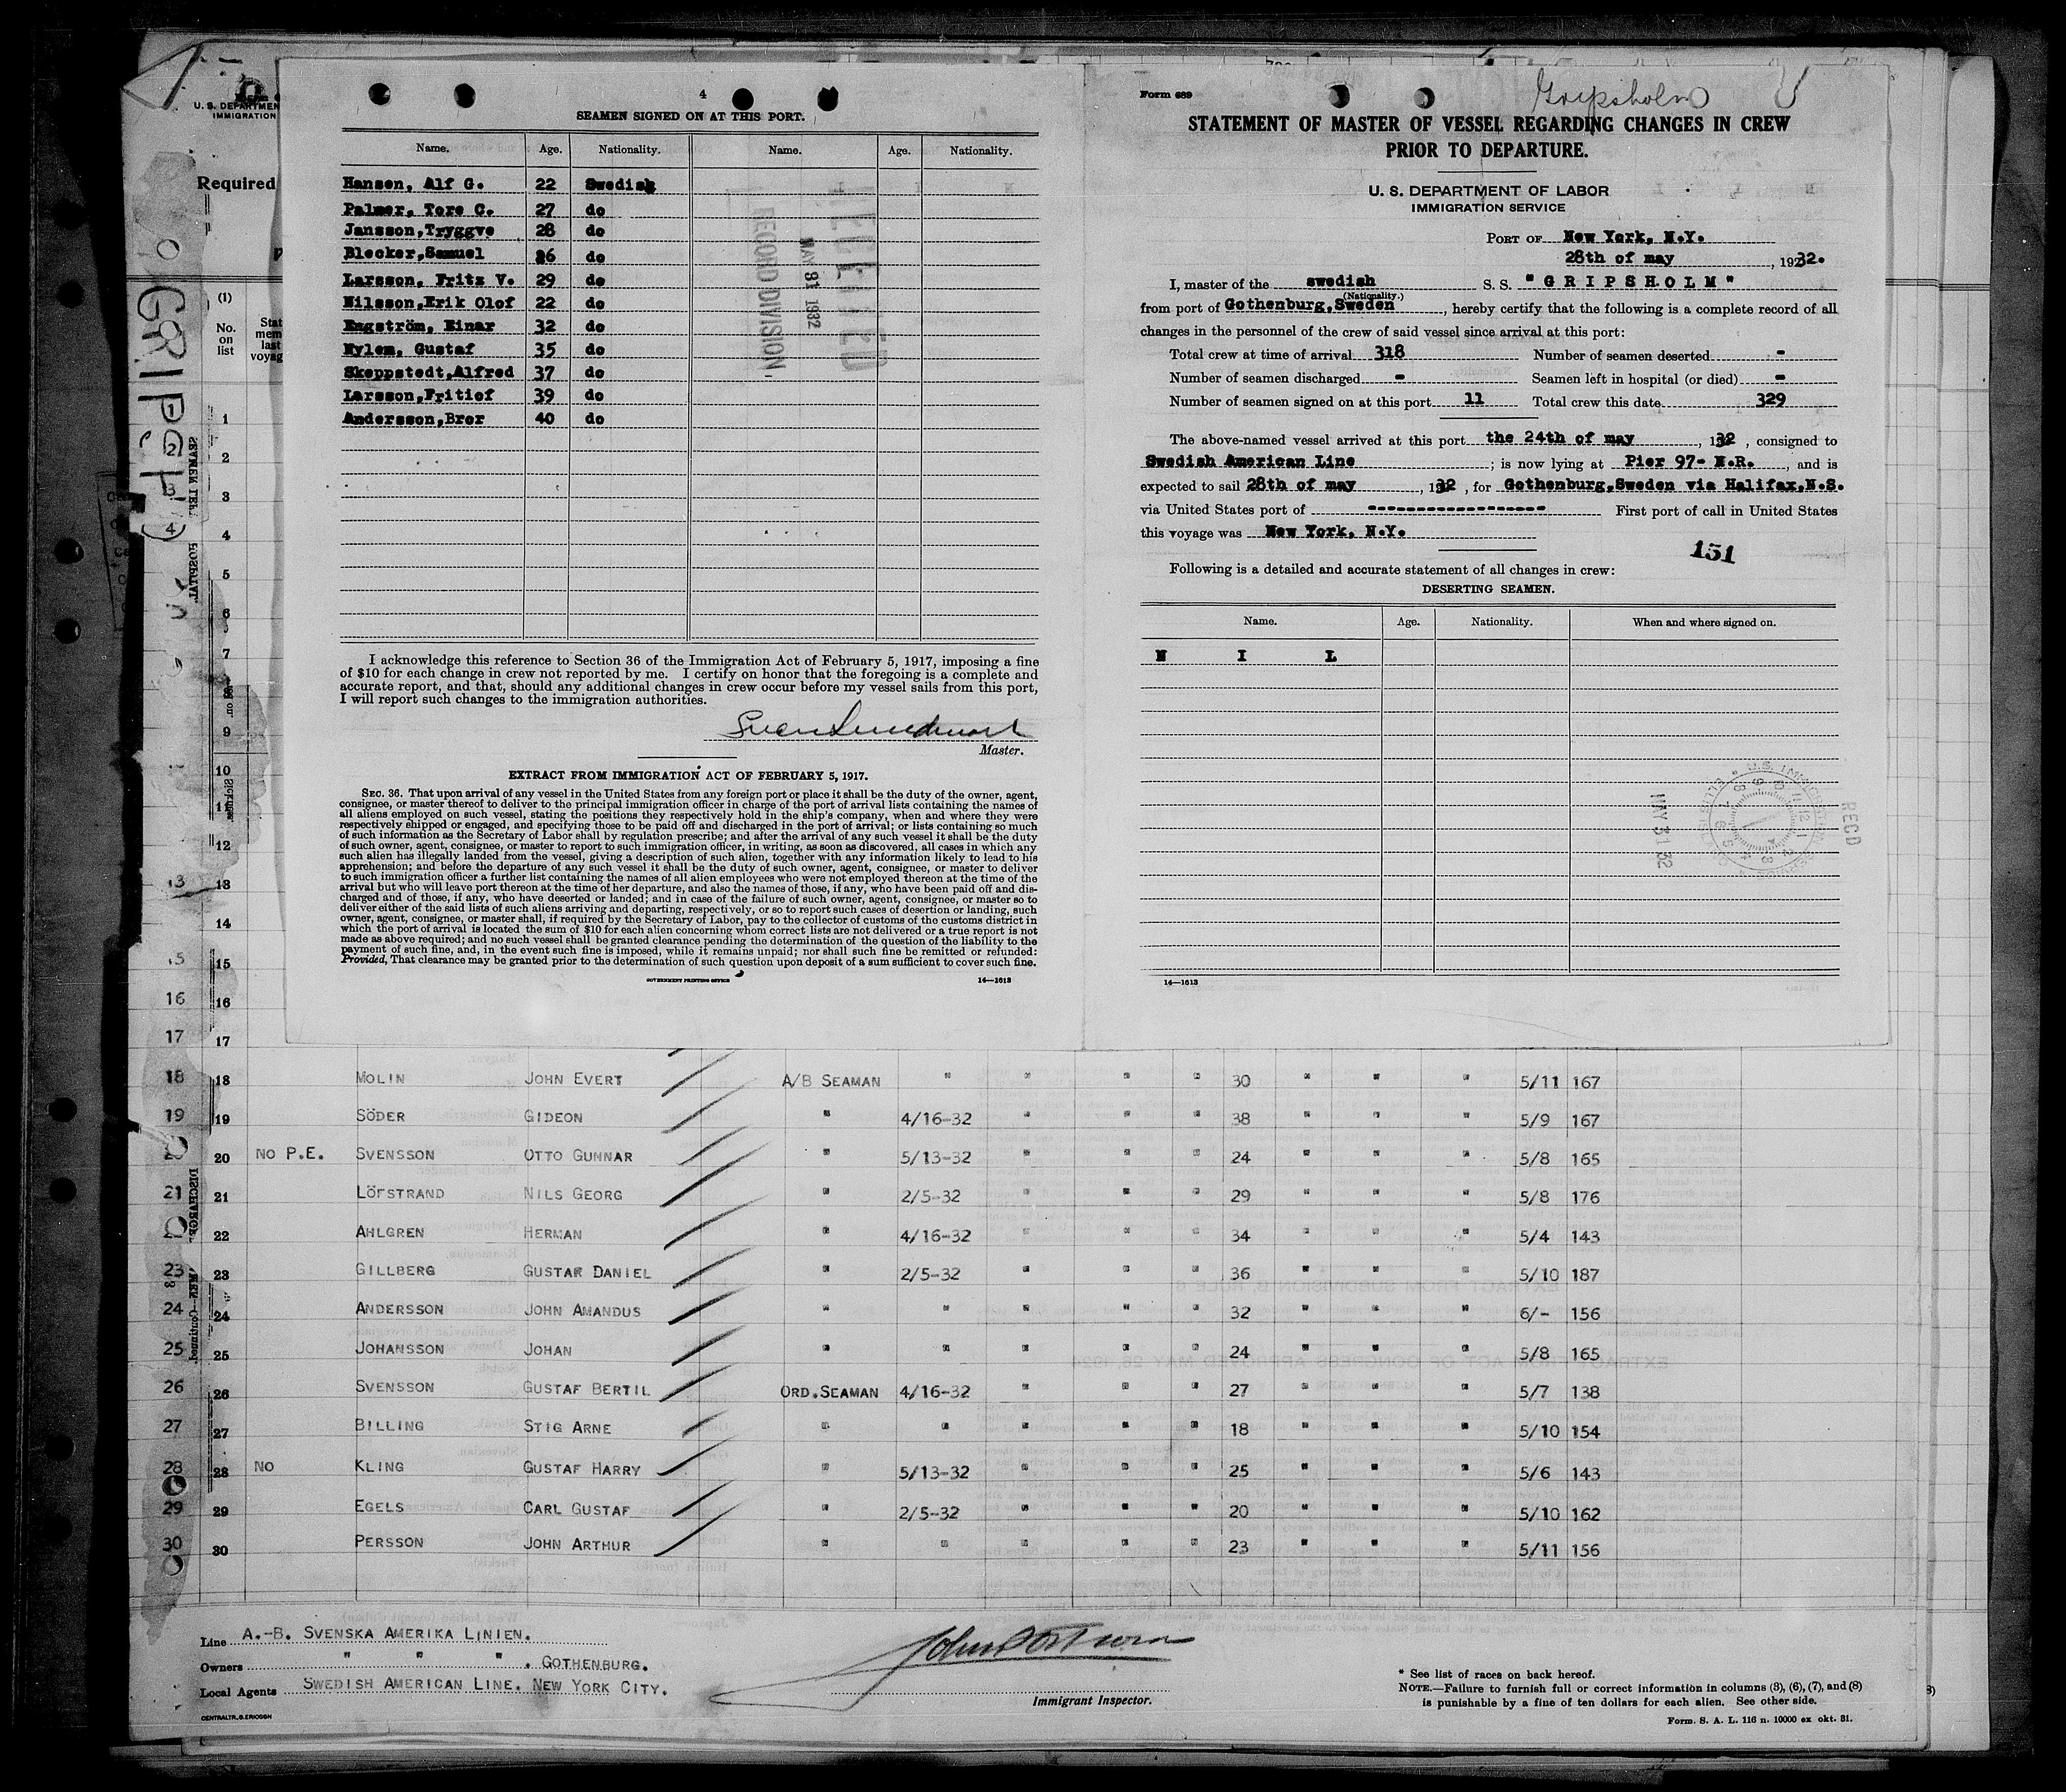 4
SEAMEN SIGNED ON AT THIS PORT.
Name. Age. Nationality. Name. Age. Nationality.
Hansen, Alf G. 22 Swedish
Palmer, Tore C. 27 do
Jansson,Tryggve 28 do
Blecker,Samuel 26 do
Larsson, Fritz V. 29 do
Nilsson,Erik Olof 22 do
Engström, Einar 32 do
Nylem, Gustaf 35 do
Skeppstedt,Alfred 37 do
Larsson,Fritiof 39 do
Andersson,Bror 40 do
RECEIVED
MAY 31 1932
RECORD DIVISION.
I acknowledge this reference to Section 36 of the Immigration Act of February 5, 1917, imposing a fine
of $10 for each change in crew not reported by me. I certify on honor that the foregoing is a complete and
accurate report, and that, should any additional changes in crew occur before my vessel sails from this port,
I will report such changes to the immigration authorities.
Master.
EXTRACT FROM IMMIGRATION ACT OF FEBRUARY 5, 1917.
SEC. 36. That upon arrival of any vessel in the United States from any foreign port or place it shall be the duty of the owner, agent,
consignee, or master thereof to deliver to the principal immigration officer in charge of the port of arrival lists containing the names of
all aliens employed on such vessel, stating the positions they respectively hold in the ship's company, when and where they were
respectively shipped or engaged, and specifying those to be paid off and discharged in the port of arrival; or lists containing so much
of such information as the Secretary of Labor shall by regulation prescribe; and after the arrival of any such vessel it shall be the duty
of such owner, agent, consignee, or master to report to such immigration officer, in writing, as soon as discovered, all cases in which any
such alien has illegally landed from the vessel, giving a description of such alien, together with any information likely to lead to his
apprehension; and before the departure of any such vessel it shall be the duty of such owner, agent, consignee, or master to deliver
to such immigration officer a further list containing the names of all alien employees who were not employed thereon at the time of the
arrival but who will leave port thereon at the time of her departure, and also the names of those, if any, who have been paid off and dis-
charged and of those, if any, who have deserted or landed; and in case of the failure of such owner, agent, consignee, or master so to
deliver either of the said lists of such aliens arriving and departing, respectively, or so to report such cases of desertion or landing, such
owner, agent, consignee, or master shall, if required by the Secretary of Labor, pay to the collector of customs of the customs district in
which the port of arrival is located the sum of $10 for each alien concerning whom correct lists are not delivered or a true report is not
made as above required; and no such vessel shall be granted clearance pending the determination of the question of the liability to the
payment of such fine, and, in the event such fine is imposed, while it remains unpaid; nor shall such fine be remitted or refunded:
Provided, That clearance may be granted prior to the determination of such question upon deposit of a sum sufficient to cover such fine.
GOVERNMENT PRINTING OFFICE 14—1613
Form 689
Gripsholm
STATEMENT OF MASTER OF VESSEL REGARDING CHANGES IN CREW
PRIOR TO DEPARTURE.
U. S. DEPARTMENT OF LABOR
IMMIGRATION SERVICE
PORT OF New York, N.Y.
28th of may , 1932.
I, master of the swedish S. S. "GRIPSHOLM"
(Nationality.)
from port of Gothenburg,Sweden , hereby certify that the following is a complete record of all
changes in the personnel of the crew of said vessel since arrival at this port:
Total crew at time of arrival 318 Number of seamen deserted -
Number of seamen discharged - Seamen left in hospital (or died) -
Number of seamen signed on at this port 11 Total crew this date 329
The above-named vessel arrived at this port the 24th of may , 132 , consigned to
Swedish American Line ; is now lying at Pier 97- N.R. , and is
expected to sail 28th of may , 132 , for Gothenburg,Sweden via Halifax,N.S.
via United States port of ------------------- First port of call in United States
this voyage was New York, N.Y.
151
Following is a detailed and accurate statement of all changes in crew:
DESERTING SEAMEN.
Name. Age. Nationality. When and where signed on.
N I L
RECD
MAY 31 32
14—1613
U. S. DEPARTMEN
IMMIGRATION
Required
GRIPSH
(1)
No. on list
Stat mem last voyag
1
2
3
4
5
6
7
8
9
10
11
12
13 13
14
15 15
16 16
17 17
18 18 MOLIN JOHN EVERT A/B SEAMAN " " " " 30 " " " 5/11 167
19 19 SÖDER GIDEON " 4/16-32 " " " 38 " " " 5/9 167
20 NO P.E. SVENSSON OTTO GUNNAR " 5/13-32 " " " 24 " " " 5/8 165
21 21 LÖFSTRAND NILS GEORG " 2/5-32 " " " 29 " " " 5/8 176
22 AHLGREN HERMAN " 4/16-32 " " " 34 " " " 5/4 143
23 23 GILLBERG GUSTAF DANIEL " 2/5-32 " " " 36 " " " 5/10 187
24 24 ANDERSSON JOHN AMANDUS " " " " " 32 " " " 6/- 156
25 25 JOHANSSON JOHAN " " " " " 24 " " " 5/8 165
26 26 SVENSSON GUSTAF BERTIL ORD.SEAMAN 4/16-32 " " " 27 " " " 5/7 138
27 27 BILLING STIG ARNE " " " " " 18 " " " 5/10 154
28 28 NO KLING GUSTAF HARRY " 5/13-32 " " " 25 " " " 5/6 143
29 29 EGELS CARL GUSTAF " 2/5-32 " " " 20 " " " 5/10 162
30 30 PERSSON JOHN ARTHUR " " " " " 23 " " " 5/11 156
Line A.-B. SVENSKA AMERIKA LINIEN.
Owners " " " . GOTHENBURG.
Local Agents SWEDISH AMERICAN LINE. NEW YORK CITY.
CENTRALTR.G.ERICSON
Immigrant Inspector.
* See list of races on back hereof.
NOTE.—Failure to furnish full or correct information in columns (3), (6), (7), and (8)
is punishable by a fine of ten dollars for each alien. See other side.
Form. S. A. L. 116 n. 10000 ex okt. 31.